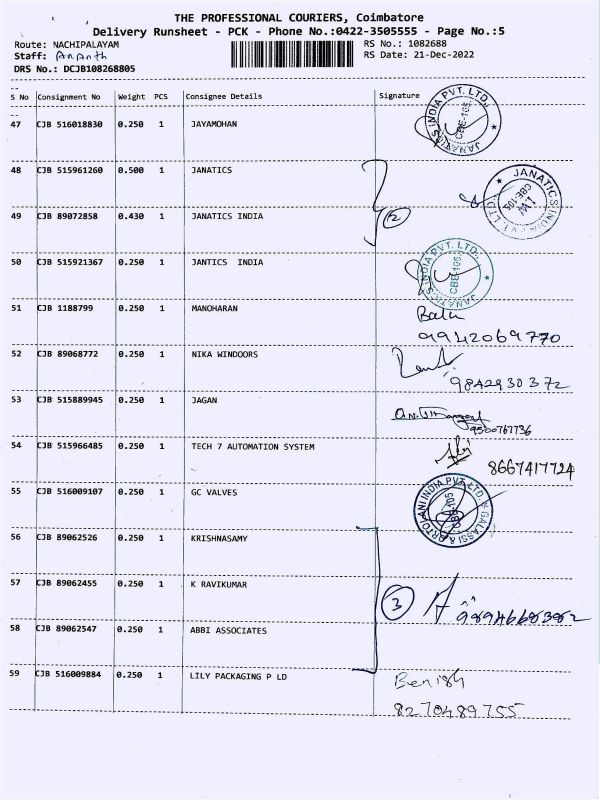 THE PROFESSIONAL COURIERS, Coimbatore
Delivery Runsheet - PCK - Phone No.:0422-3505555 - Page No.:5
Route: NACHIPALAYAM RS No.: 1082688
Staff: Ananth RS Date: 21-Dec-2022
DRS No.: DCJB108268805
S No Consignment No Weight PCS Consignee Details Signature
47 CJB 516018830 0.250 1 JAYAMOHAN
JANATICS INDIA PVT. LTD. CBE-105
48 CJB 515961260 0.500 1 JANATICS
JANATICS INDIA PVT. LTD. CBE-105
49 CJB 89072858 0.430 1 JANATICS INDIA
2
50 CJB 515921367 0.250 1 JANTICS INDIA
JANATICS INDIA PVT. LTD. CBE-105
51 CJB 1188799 0.250 1 MANOHARAN
9942069770
52 CJB 89068772 0.250 1 NIKA WINDOORS
9842930372
53 CJB 515889945 0.250 1 JAGAN
9500767736
54 CJB 515966485 0.250 1 TECH 7 AUTOMATION SYSTEM
8667417724
55 CJB 516009107 0.250 1 GC VALVES
GALASSI & ORTOLANI INDIA PVT. LTD.
56 CJB 89062526 0.250 1 KRISHNASAMY
57 CJB 89062455 0.250 1 K RAVIKUMAR
3
58 CJB 89062547 0.250 1 ABBI ASSOCIATES
59 CJB 516009884 0.250 1 LILY PACKAGING P LD
8270489755